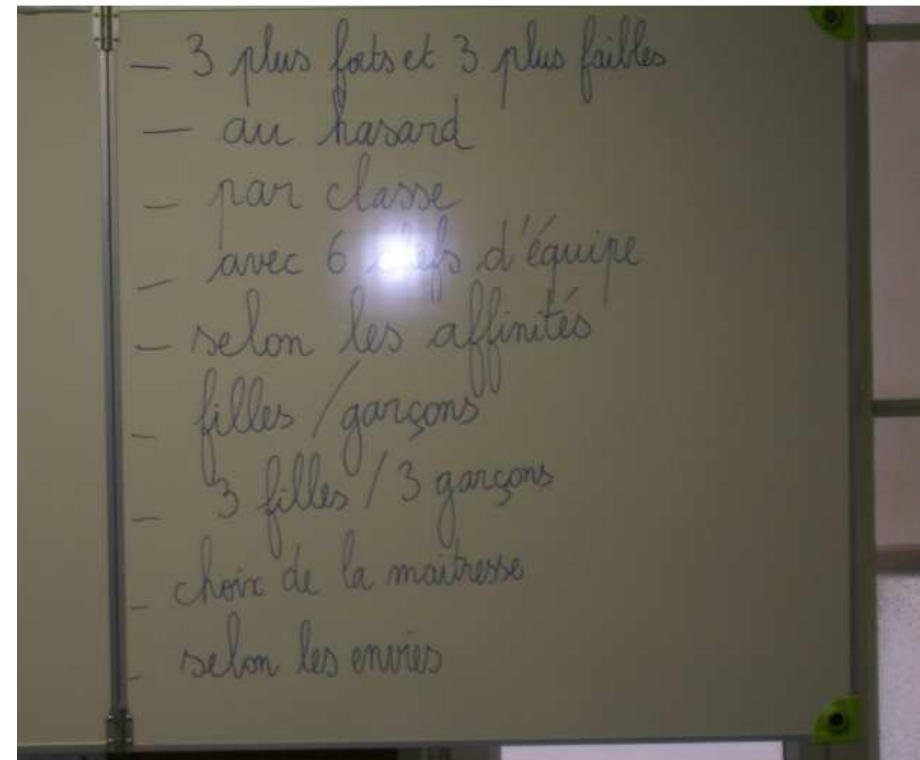 – 3 plus forts et 3 plus faibles
– au hasard
– par classe
– avec 6 chefs d'équipe
– selon les affinités
– filles / garçons
– 3 filles / 3 garçons
– choix de la maîtresse
– selon les envies